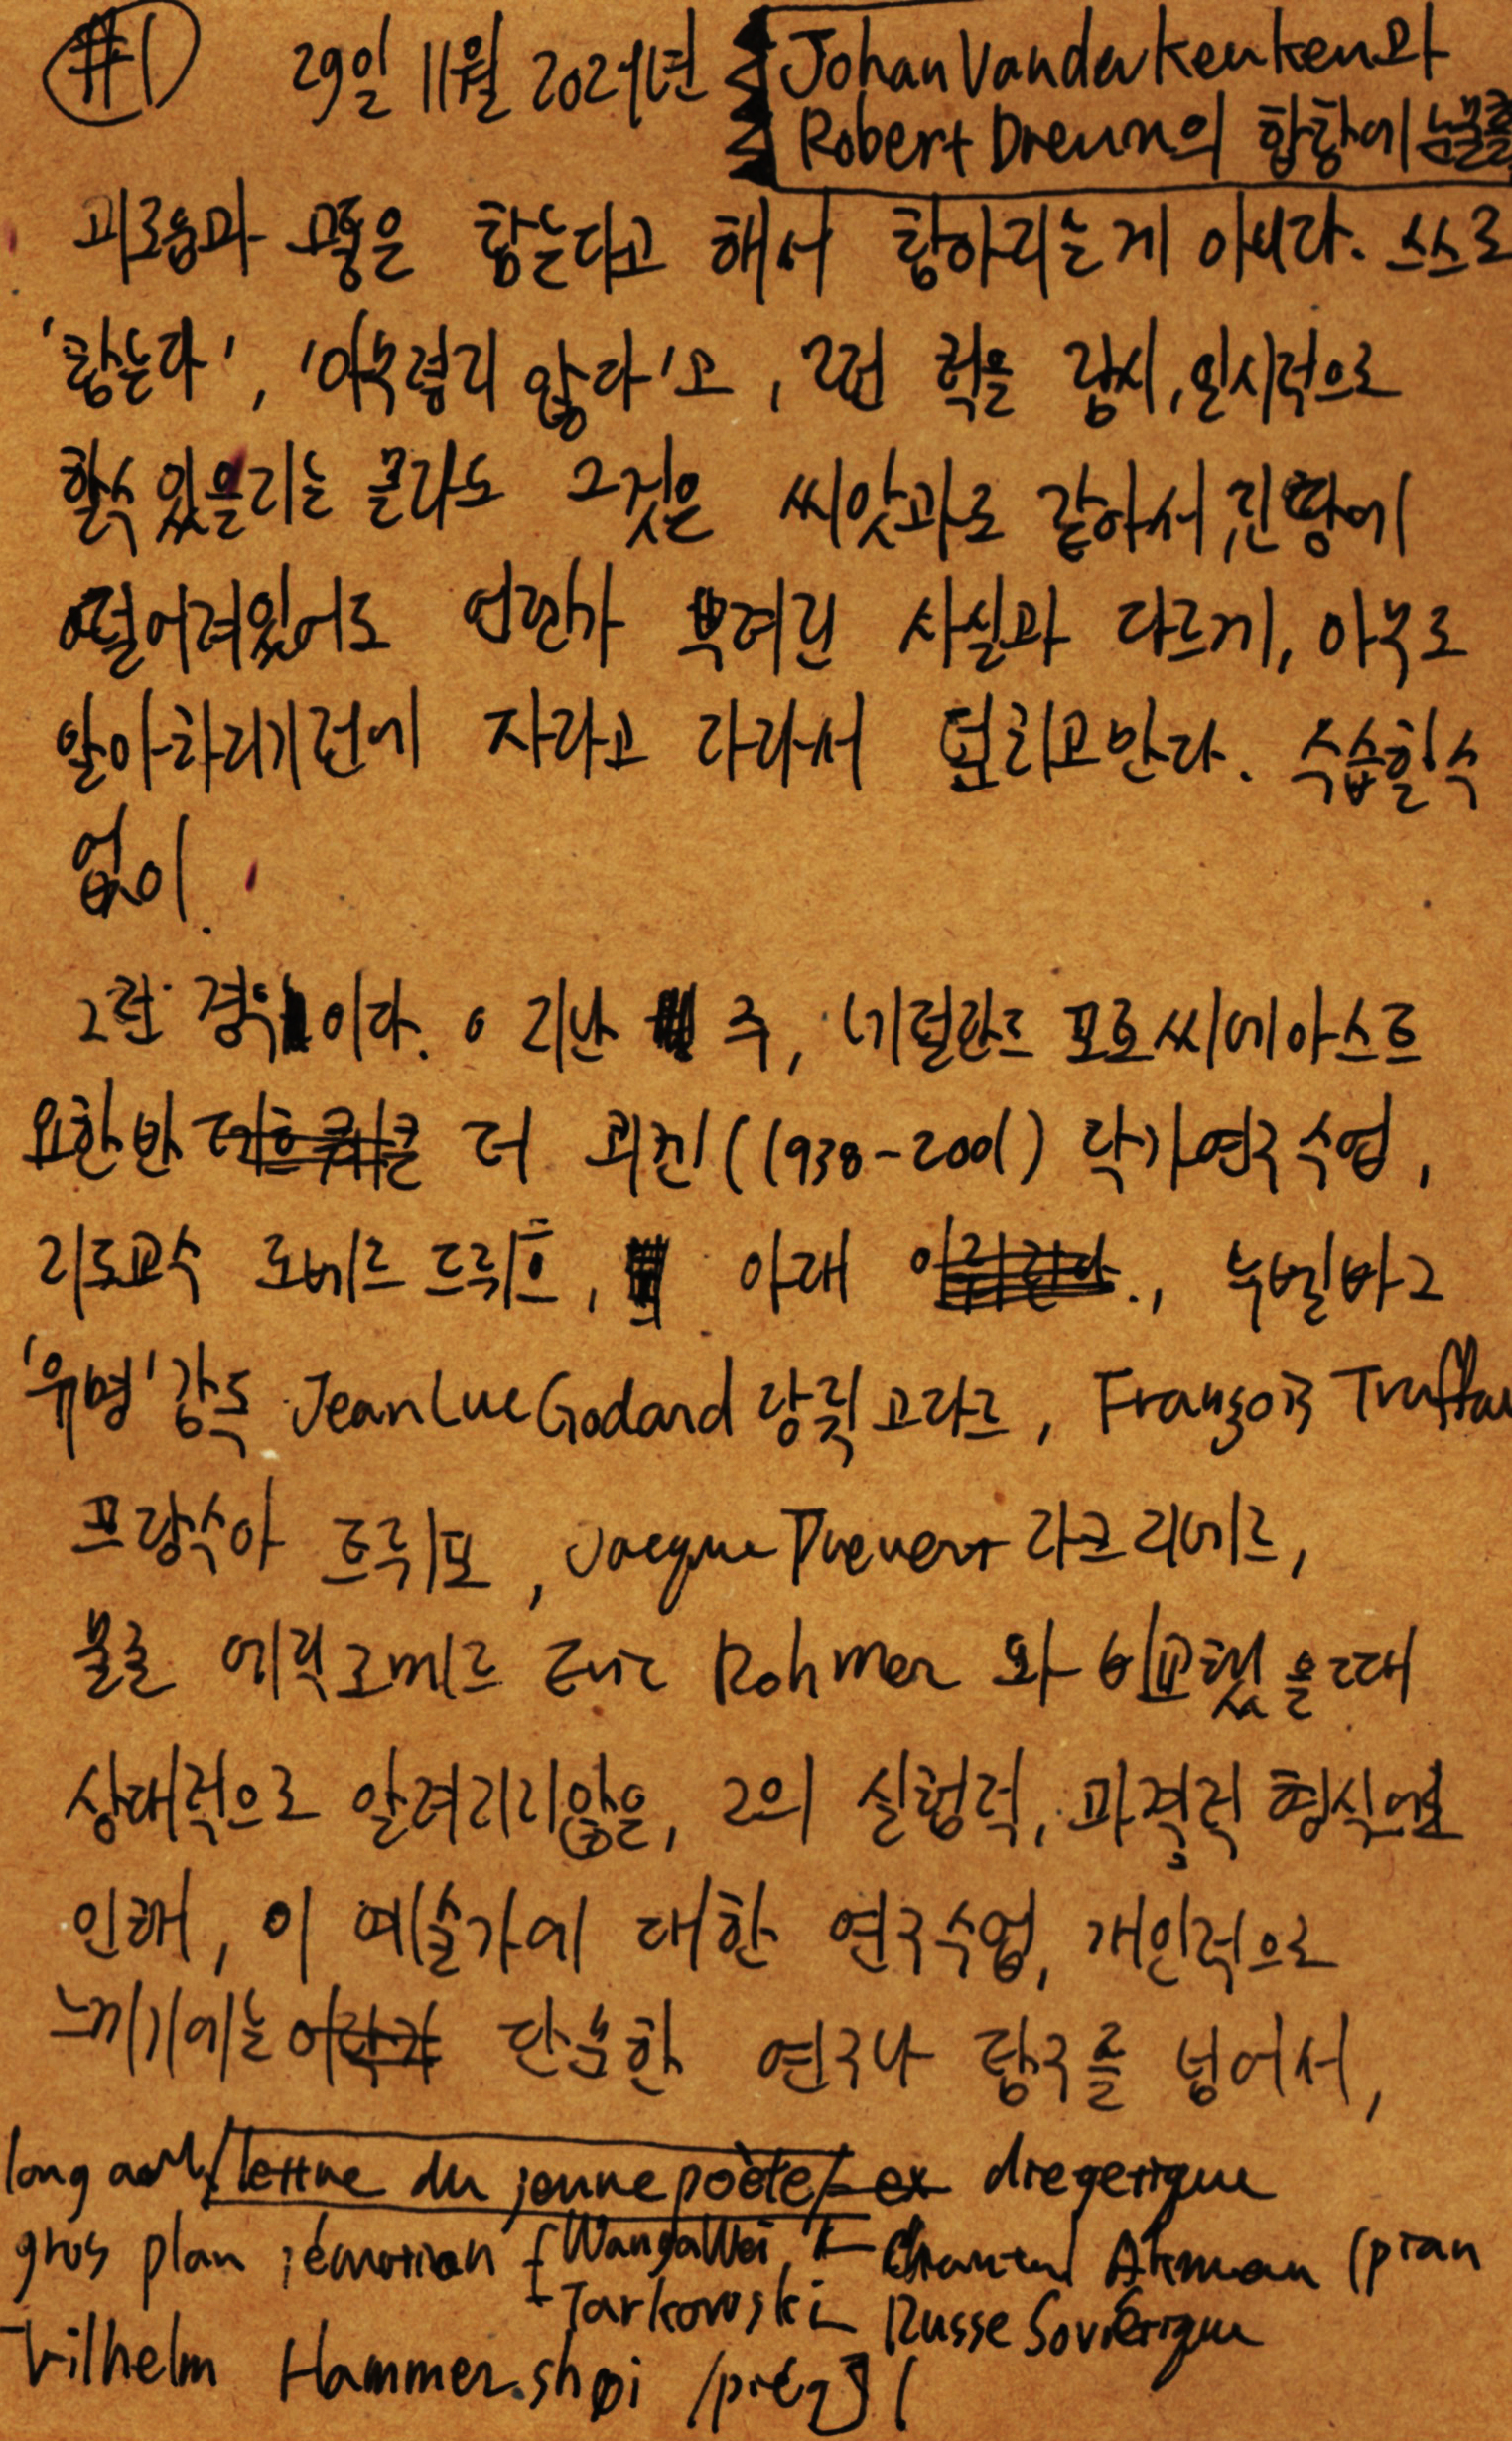 #1 29일 11월 2024년
Johan Van der Keuken과
Robert Dreux의 합창에
괴로움과 고통은 참는다고 해서 참아지는게 아니다. 스스로
'참는다', '아무렇지 않다'고, 그런 척을 잠시, 일시적으로
할수 있을지는 몰라도 그것은 씨앗과도 같아서, 진땅에
떨어져있어도 언젠가 뿌려진 사실과 다르게, 아무도
알아차리기 전에 자라고 자라서 버리고만다. 수습할 수
없이.
그런 경우이다. 지난 주, 네덜란드 포토 씨네아스트
요한 반 더 쾨켄 (1938-2001) 작가연구 수업,
지도교수 로베르 드뤼흐, 아래, 누벨바그
'유명' 감독 Jean Luc Godard 장뤽 고다르, François Truffau
프랑수아 트뤼포, 자크 리베르,
불로 에릭 로메르 Eric Rohmer 와 비교했을때
상대적으로 알려지지않은, 그의 실험적, 파격적 형식으로
인해, 이 예술가에 대한 연구수업, 개인적으로
느끼기에는 단순한 연구나 탐구를 넘어서,
long lettre du jeune poète ex diegetique
gros plan ; émotion Chantal Akman (plan
Tarkovski Russe Soviétique
Vilhelm Hammer.shøi